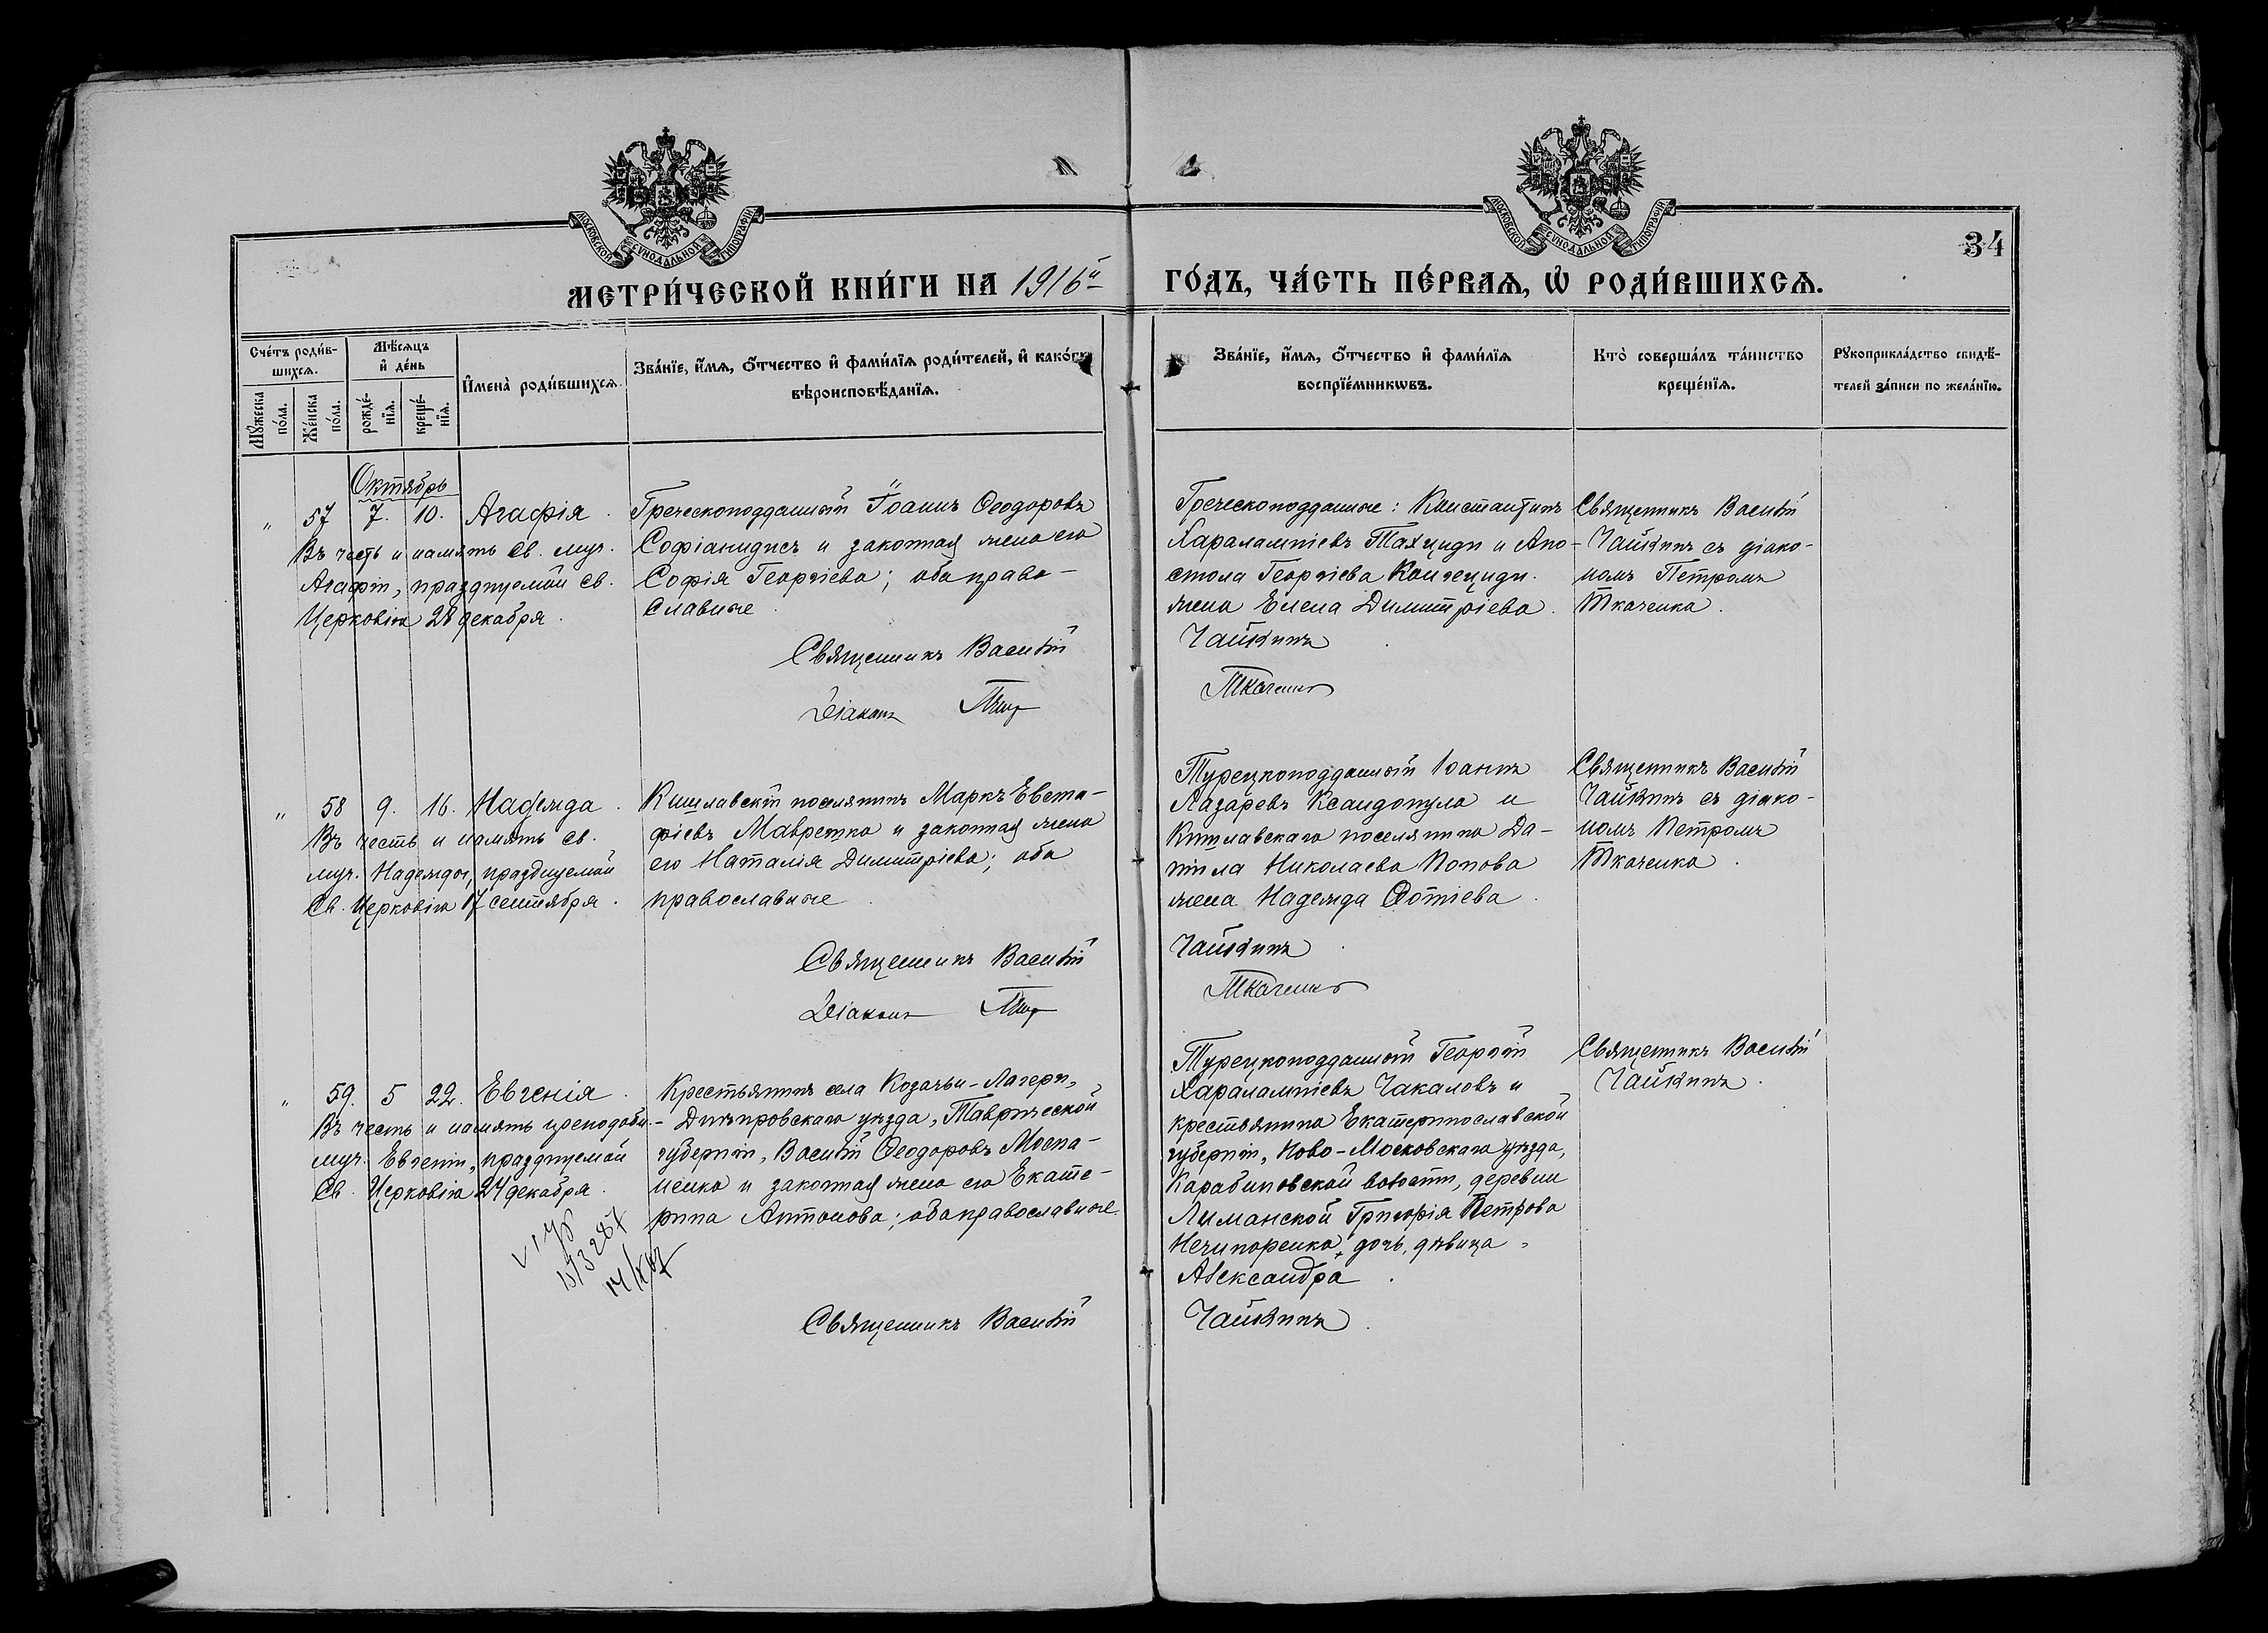 МОСКОВСКОЙ СУНОДАЛЬНОЙ ТИПОГРАФІИ
МОСКОВСКОЙ СУНОДАЛЬНОЙ ТИПОГРАФІИ
34
МЕТРИ́ЧЕСКОЙ КНИ́ГИ НА 1916й
ГО́ДЪ, ЧА́СТЬ ПЕ́РВАѦ, Ѡ҆ РОДИ́ВШИХСѦ.
Сче́тъ роди́в-
шихсѧ.
Мꙋ́жеска по́ла.
Же́нска по́ла.
Мѣ́сѧцъ
и҆ де́нь
рожде́-
нїѧ.
креще́-
нїѧ.
И҆мена̀ роди́вшихсѧ.
Зва́нїе, и҆́мѧ, ѻ҆́тчество и҆ фами́лїѧ роди́телей, и҆ како́гѡ
вѣроисповѣ́данїѧ.
Зва́нїе, и҆́мѧ, ѻ҆́тчество и҆ фами́лїѧ
воспрїе́мникѡвъ.
Кто̀ соверша́лъ та́инство
креще́нїѧ.
Рꙋкоприкла́дство свидѣ́-
телей за́писи по жела́нїю.
Октябрь
" 57 7. 10. Агафія.
Въ честь и память Св. муч.
Агафіи, празднуемой Св.
Церковію 28 декабря.
Греческоподданный Іоаннъ Ѳеодоровъ
Софіанидисъ и законная жена его
Софія Георгіева; оба право-
славные
Священникъ Василій
Діаконъ Петр
Греческоподданные: Константинъ
Харалампіевъ Тахциди и Апо-
стола Георгіева
жена Елена Димитріева.
Чайкинъ
Ткаченко
Священникъ Василій
Чайкинъ съ діако-
номъ Петромъ
Ткаченко.
" 58 9. 16. Надежда.
Въ честь и память св.
муч. Надежды, празднуемой
Св. Церковію 17 сентября.
Кишлавскій поселянинъ Маркъ Евста-
фіевъ Мавретко и законная жена
его Наталія Димитріева; оба
православные
Священникъ Василій
Діаконъ Петр
Турецкоподданный Іоаннъ
Лазаревъ Ксандопуло и
Кишлавскаго поселянина Да-
ніила Николаева Попова
жена Надежда Фотіева.
Чайкинъ
Ткаченко
Священникъ Василій
Чайкинъ съ діако-
номъ Петромъ
Ткаченко.
" 59. 5 22. Евгенія.
Въ честь и память преподобн.-
муч. Евгеніи, празднуемой
Св. Церковію 24 декабря.
Крестьянинъ села Козачьи-Лагери,
Днѣпровскаго уѣзда, Таврической
губерніи, Василій Ѳеодоровъ Моспа-
ненко и законная жена его Екате-
рина Антонова; оба православные.
Священникъ Василій
Турецкоподданный Георгій
Харалампіевъ Чакаловъ и
крестьянина Екатеринославской
губерніи, Ново-Московскаго уѣзда,
Карабиновской волости, деревни
Лиманской Григорія Петрова
Нечипоренко, дочь, дѣвица
Александра.
Чайкинъ
Священникъ Василій
Чайкинъ.